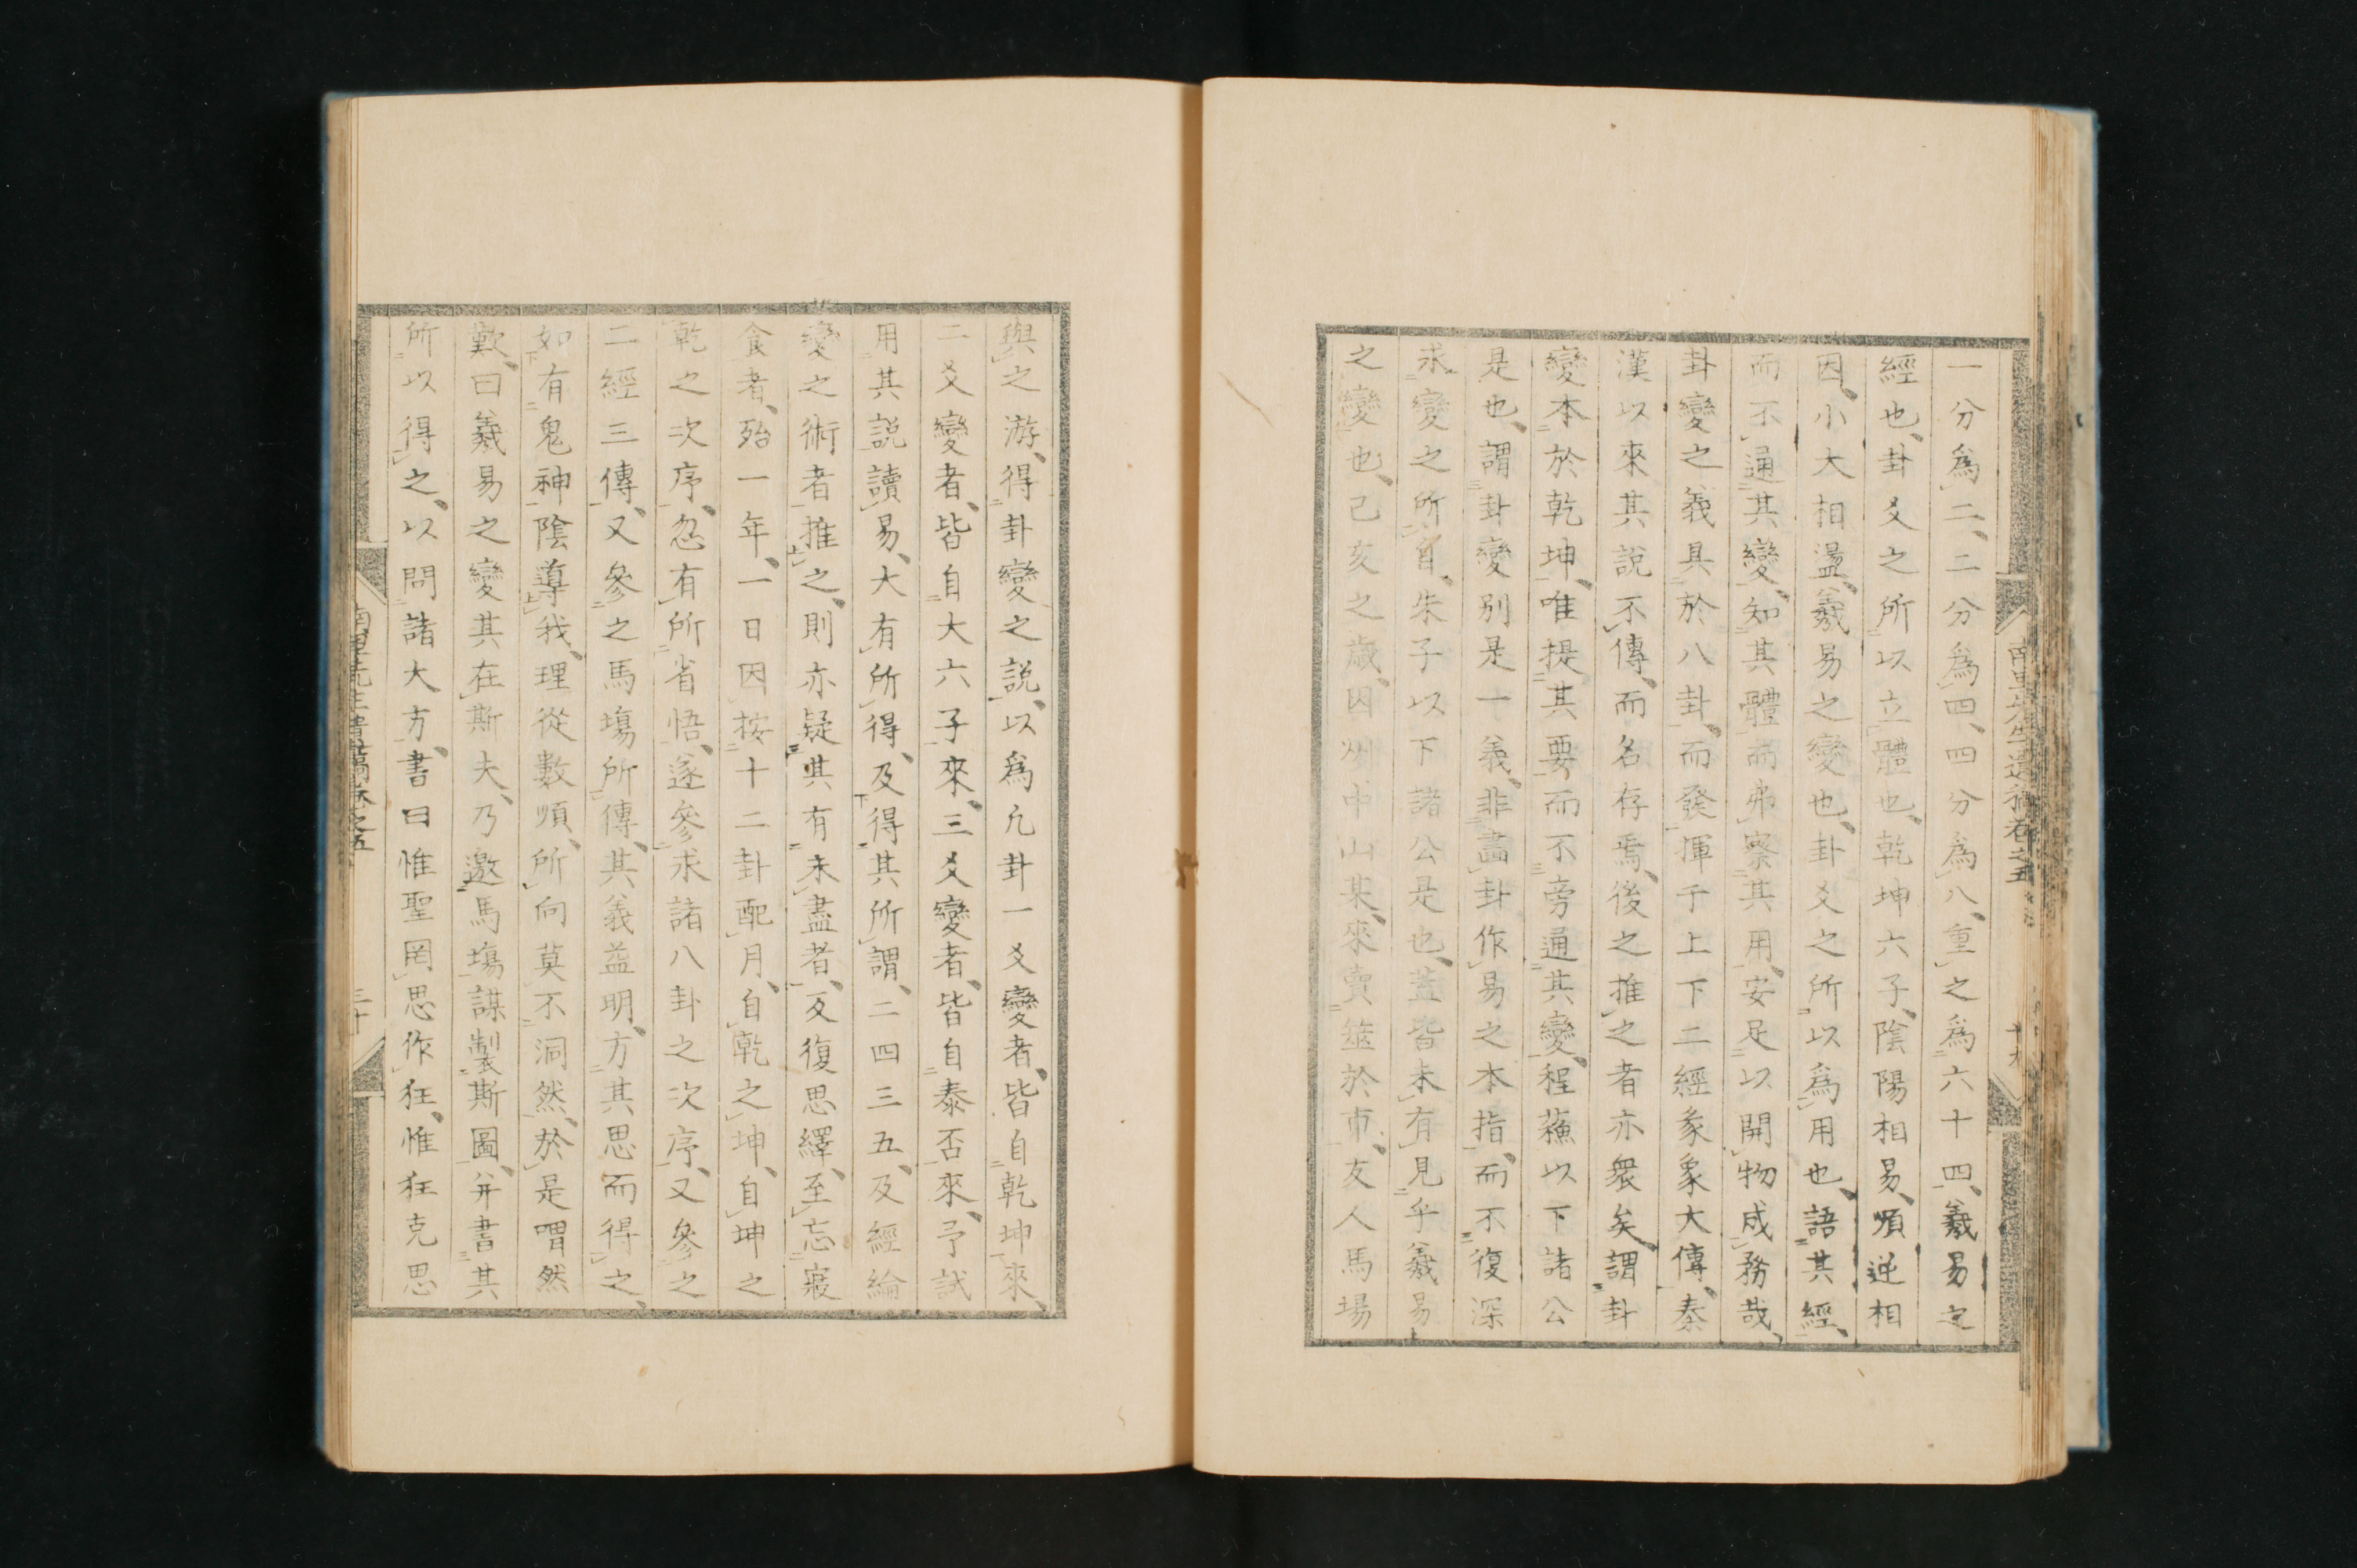 一分爲二、二分爲四、四分爲八、重之爲六十四、羲易之
經也、卦爻之所以立體也、乾坤六子、陰陽相易、順逆相
因、小大相盪、羲易之變也、卦爻之所以爲用也、語其經、
而不通其變、知其體而弗察其用、安足以開物成務哉、
卦變之義具於八卦、而發揮于上下二經彖象大傳、秦
漢以來其說不傳、而名存焉、後之推之者亦衆矣、謂卦
變本於乾坤、唯提其要而不旁通其變、程蘓以下諸公
是也、謂卦變別是一義、非畫卦作易之本指、而不復深
求變之所自、朱子以下諸公是也、蓋皆未有見乎羲易
之變也、己亥之歲、因州中山某、來賣筮於市、友人馬場
與之游、得卦變之説、以爲凡卦一爻變者、皆自乾坤來、
二爻變者、皆自大六子來、三爻變者、皆自泰否來、予試
用其説讀易、大有所得、及得其所謂、二四三五、及經綸
變之術者推之、則亦疑其有未盡者、反復思繹、至忘寢
食者、殆一年、一日因按十二卦配月、自乾之坤、自坤之
乾之次序、忽有所省悟、遂參求諸八卦之次序、又參之
二經三傳、又參之馬塲所傳、其義益明、方其思而得之、
如有鬼神陰導我、理從數順、所向莫不洞然、於是喟然
歎曰羲易之變其在斯夫、乃邀馬塲謀製斯圖、并書其
所以得之、以問諸大方、書曰惟聖罔思作狂、惟狂克思